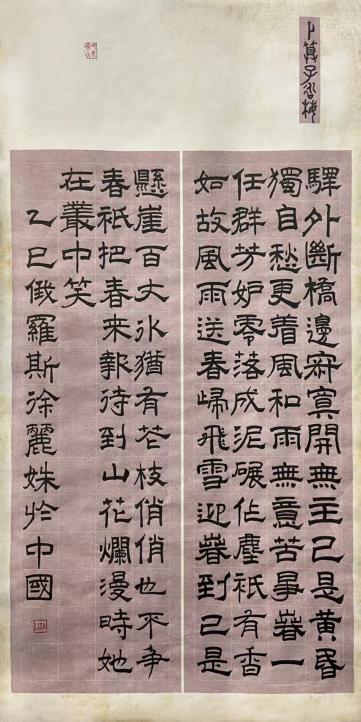 卜算子咏梅
驛外斷橋邊寂寞開無主已是黃昏
獨自愁更着風和雨無意苦爭春一
任群芳妒零落成泥碾作塵祇有香
如故風雨送春歸飛雪迎春到已是
懸崖百丈冰猶有花枝俏俏也不爭
春祇把春來報待到山花爛漫時她
在叢中笑
乙巳俄羅斯徐麗姝於中國
LIZA